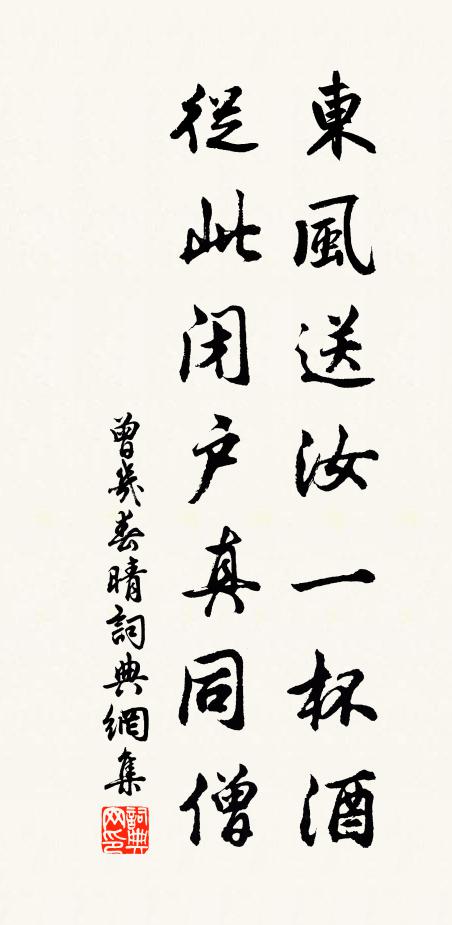 東風送汝一杯酒
從此閉户真同僧
曾幾春晴詞典網集
詞典網印